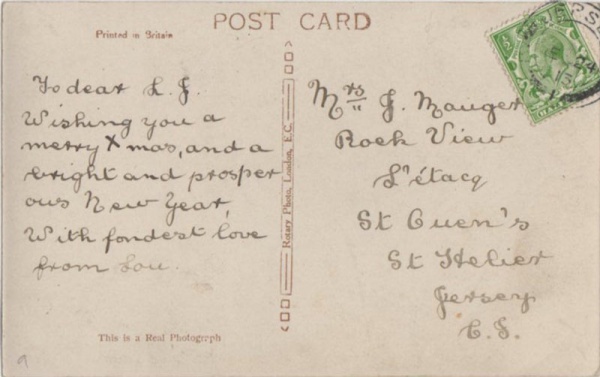 POST CARD
Printed in Britain
To dear L. J.
Wishing you a
merry Xmas, and a
bright and prosper
ous New Year,
With fondest love
from Lou.
This is a Real Photograph
Rotary Photo, London, E.C.
Mrs J. Mauger
Rock View
L'étacq
St Ouen's
St Helier
Jersey
C. I.